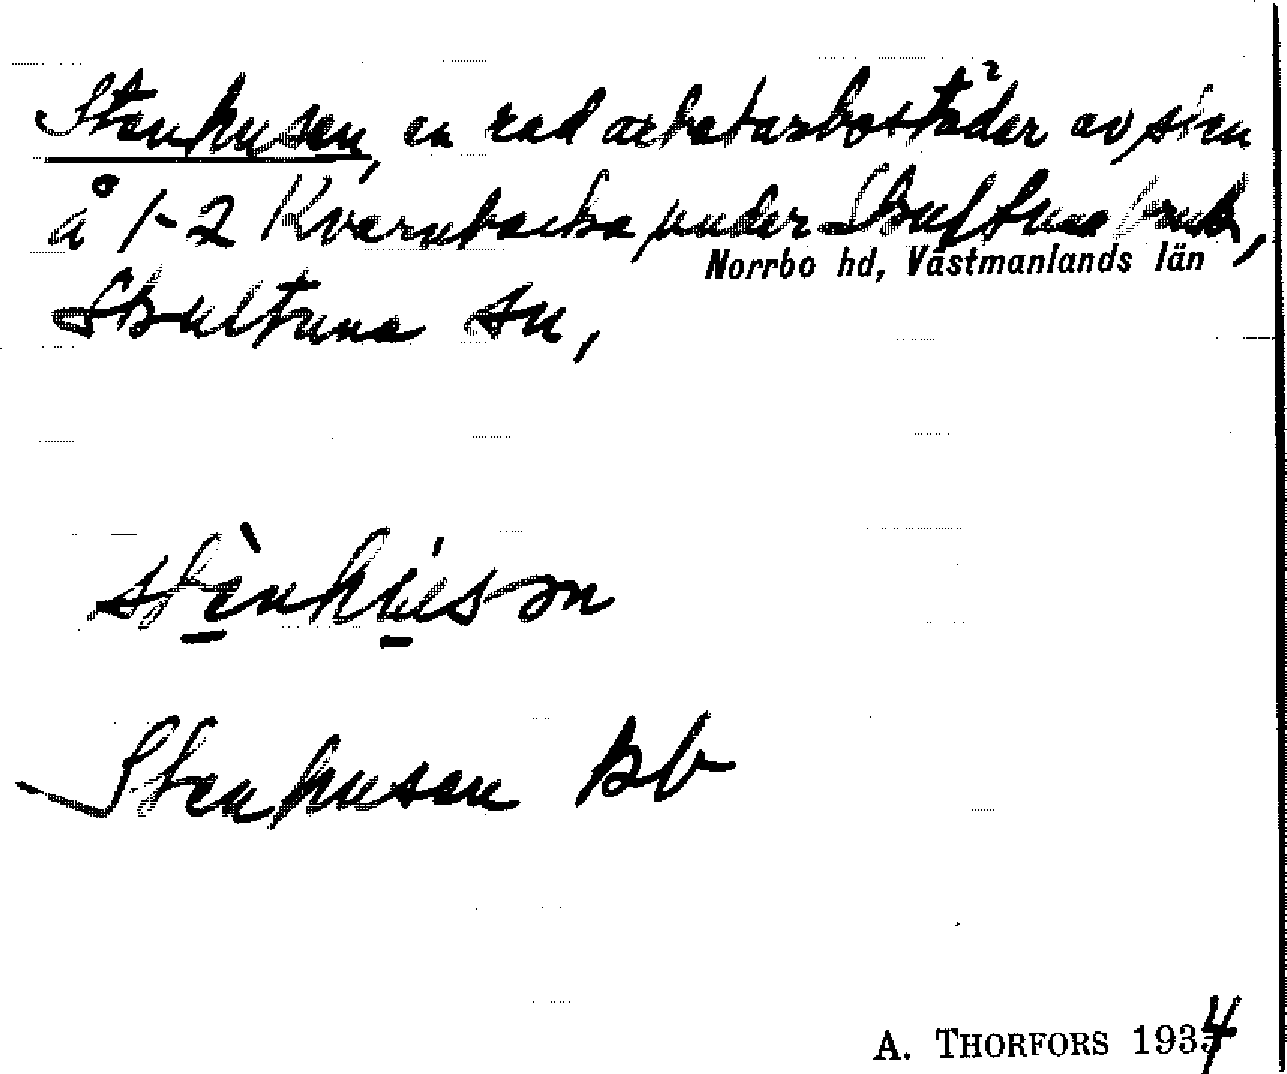 Stenhusen, en rad arbetarbostäder av sten
å 1-2 Kvarnbacka under Skultuna bruk,
Norrbo hd, Västmanlands län
Skultuna sn,
stènhúsən
Stenhusen Bb
A. THORFORS 1934